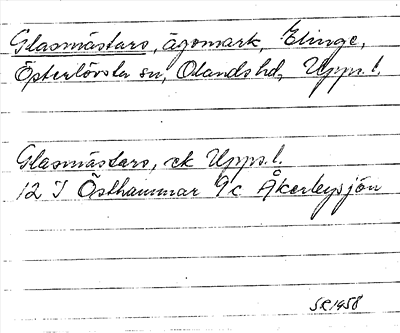 Glasmästaro, ägomark, Elinge,
Öpterlövsta sn, Olands hd, Upps. l.
Glasmästaro, ek Upps. l.
12 I Östhammar 9c Åkerbysjön
SR 1958